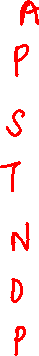 A
P
S
T
N
D
P